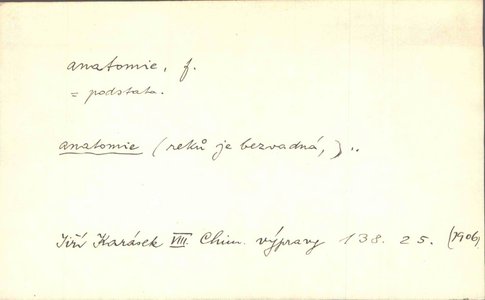 anatomie, f.
= podstata.
anatomie (reků je bezvadná,) ..
Jiří Karásek VIII. Chim. výpravy 138. 25. (1906)